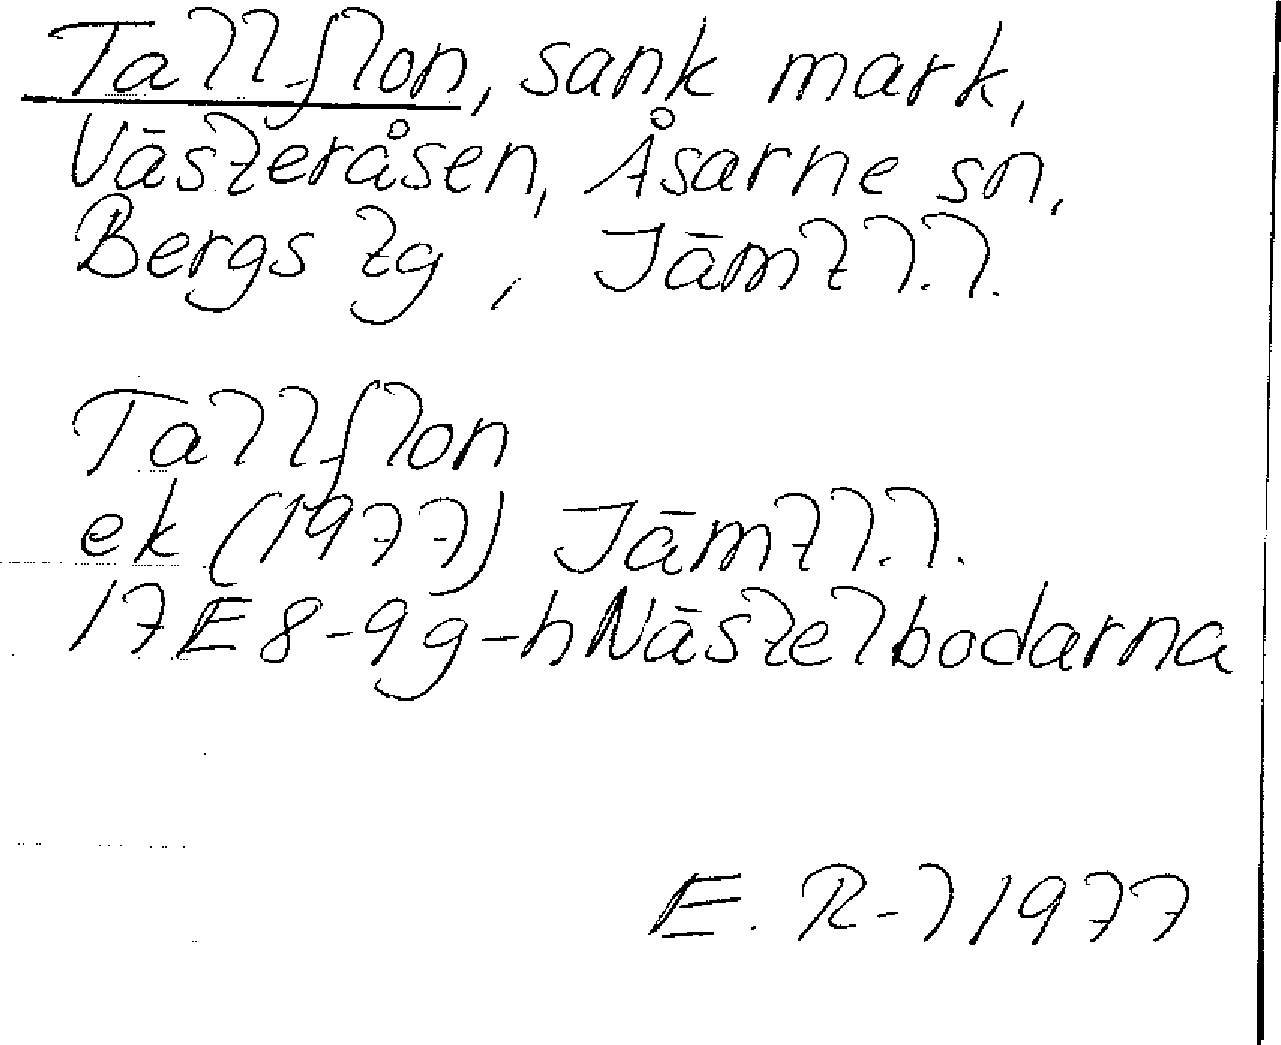 Tallflon, sank mark,
Västeråsen, Åsarne sn,
Bergs tg, Jämtl.l.
Tallflon
ek (1977) Jämtl.l.
17E 8-9 g-h Nästelbodarna
E. R-l 1977